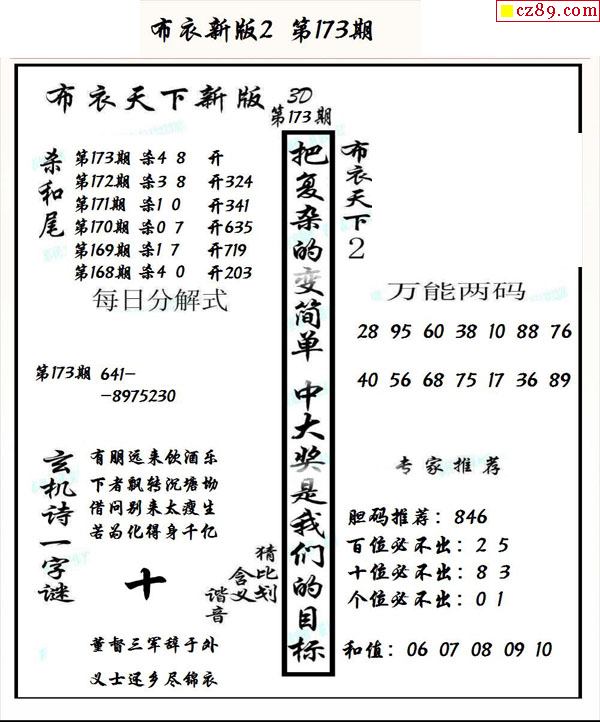 cz89.com
布衣新版2 第173期
布衣天下新版 3D
第173期
杀和尾
第173期 杀4 8 开
第172期 杀3 8 开324
第171期 杀1 0 开341
第170期 杀0 7 开635
第169期 杀1 7 开719
第168期 杀4 0 开203
每日分解式
第173期 641-
-8975230
玄机诗一字谜
有朋远来饮酒乐
下者飘转沉塘坳
借问别来太瘦生
若为化得身千亿
十
猜比划
含义
谐音
董督三军辞于外
义士还乡尽锦衣
把复杂的变简单 中大奖是我们的目标
布衣天下2
万能两码
28 95 60 38 10 88 76
40 56 68 75 17 36 89
专家推荐
胆码推荐：846
百位必不出：2 5
十位必不出：8 3
个位必不出：0 1
和值：06 07 08 09 10